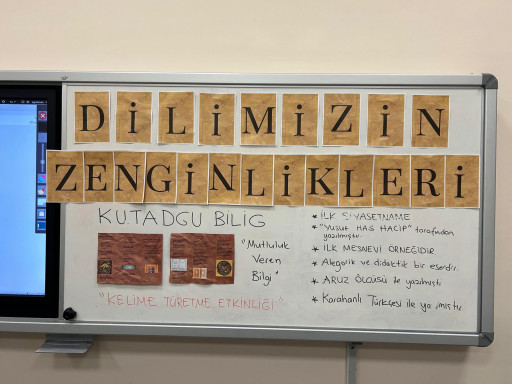 DİLİMİZİN
ZENGİNLİKLERİ
KUTADGU BİLİG
"Mutluluk
Veren
Bilgi"
"KELİME TÜRETME ETKİNLİĞİ"
* İLK SİYASETNAME
* "Yusuf HAS HACİP" tarafından
yazılmıştır.
* İLK MESNEVİ ÖRNEĞİDİR
* Alegorik ve didaktik bir eserdir.
* ARUZ ÖLÇÜSÜ ile yazılmıştı
* Karahanlı Türkçesi ile